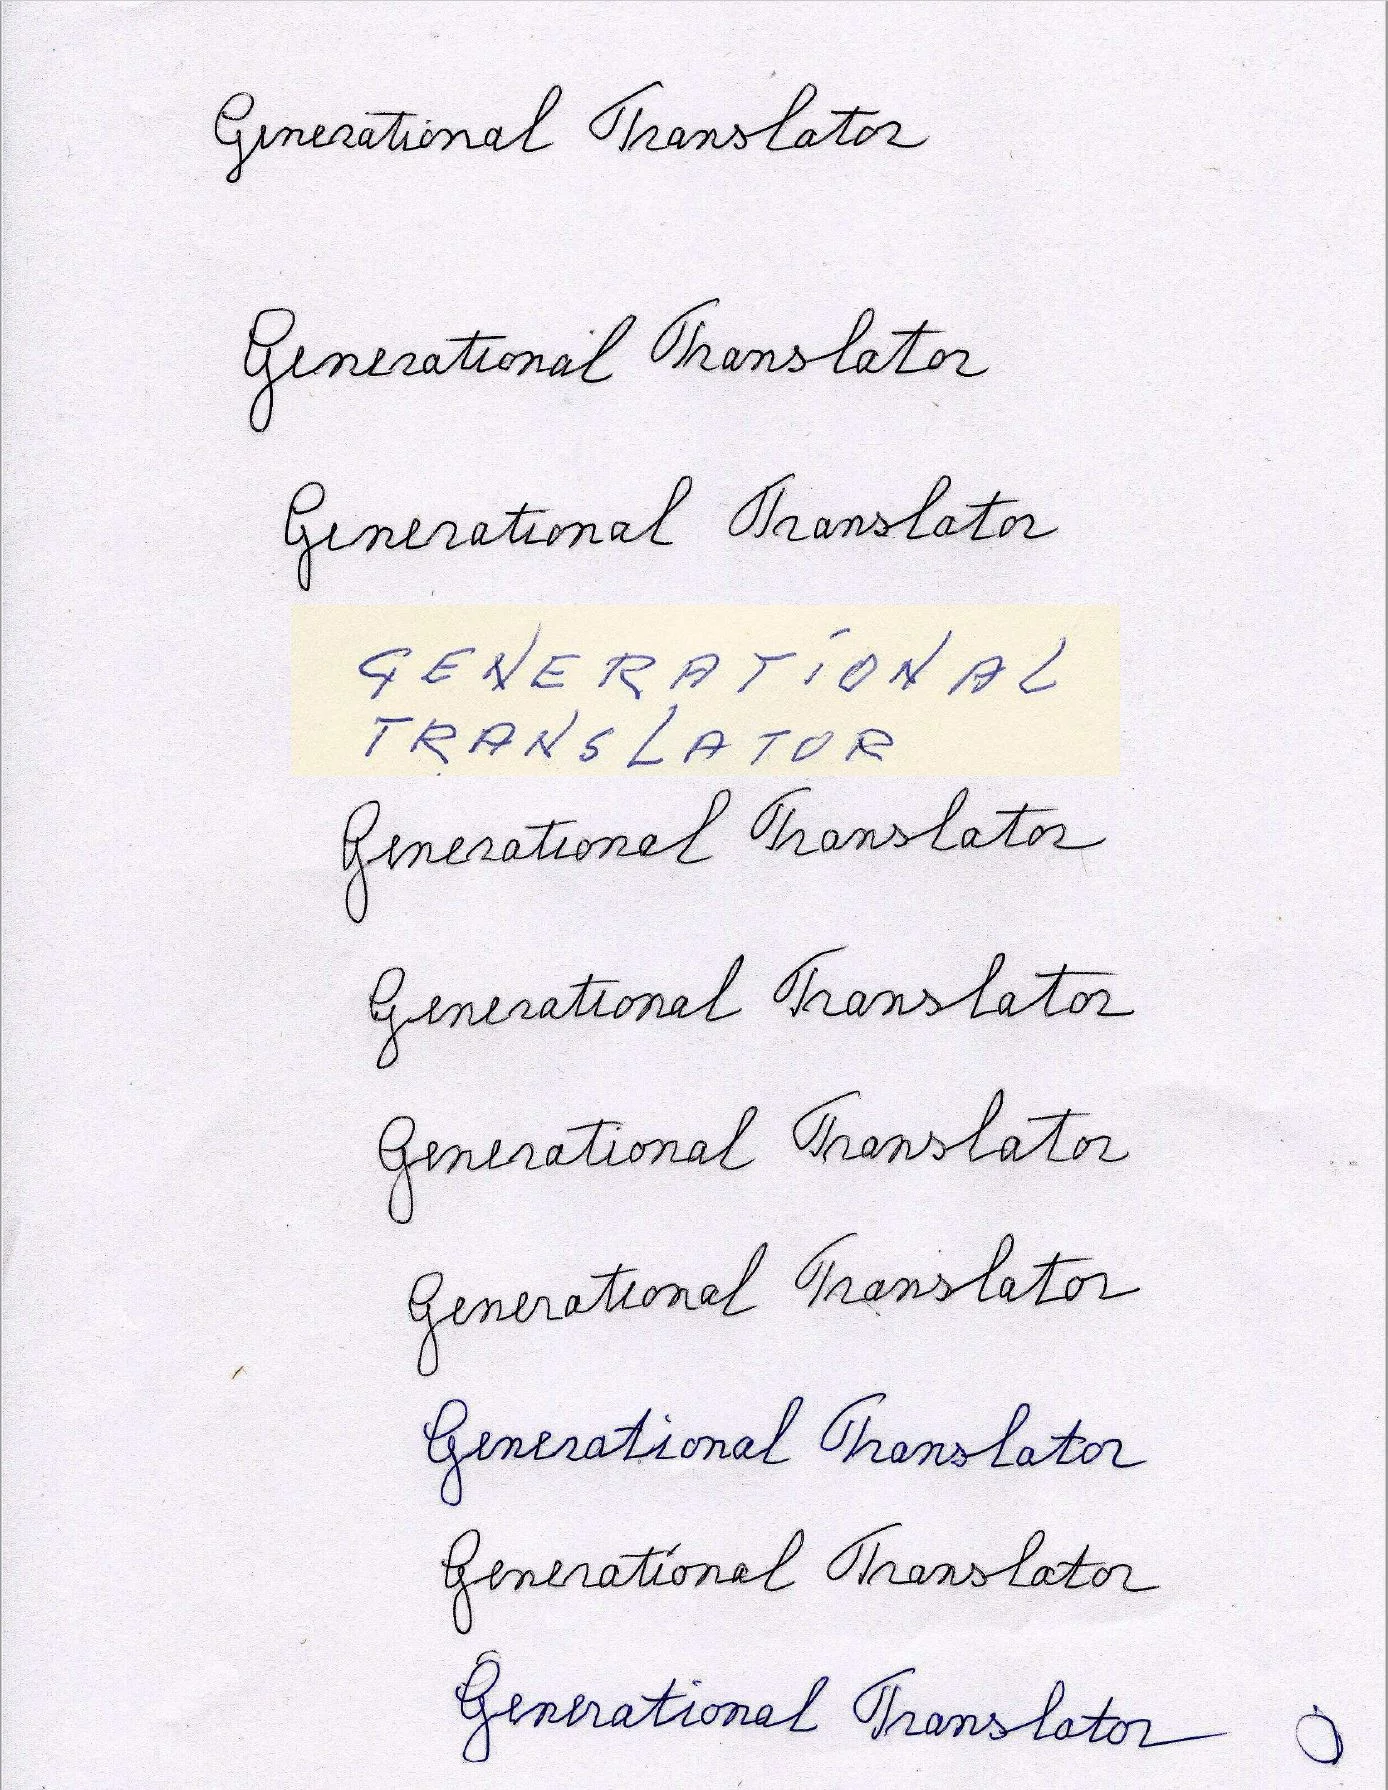 Generational Translator
Generational Translator
Generational Translator
GENERATIONAL
TRANSLATOR
Generational Translator
Generational Translator
Generational Translator
Generational Translator
Generational Translator
Generational Translator
Generational Translator